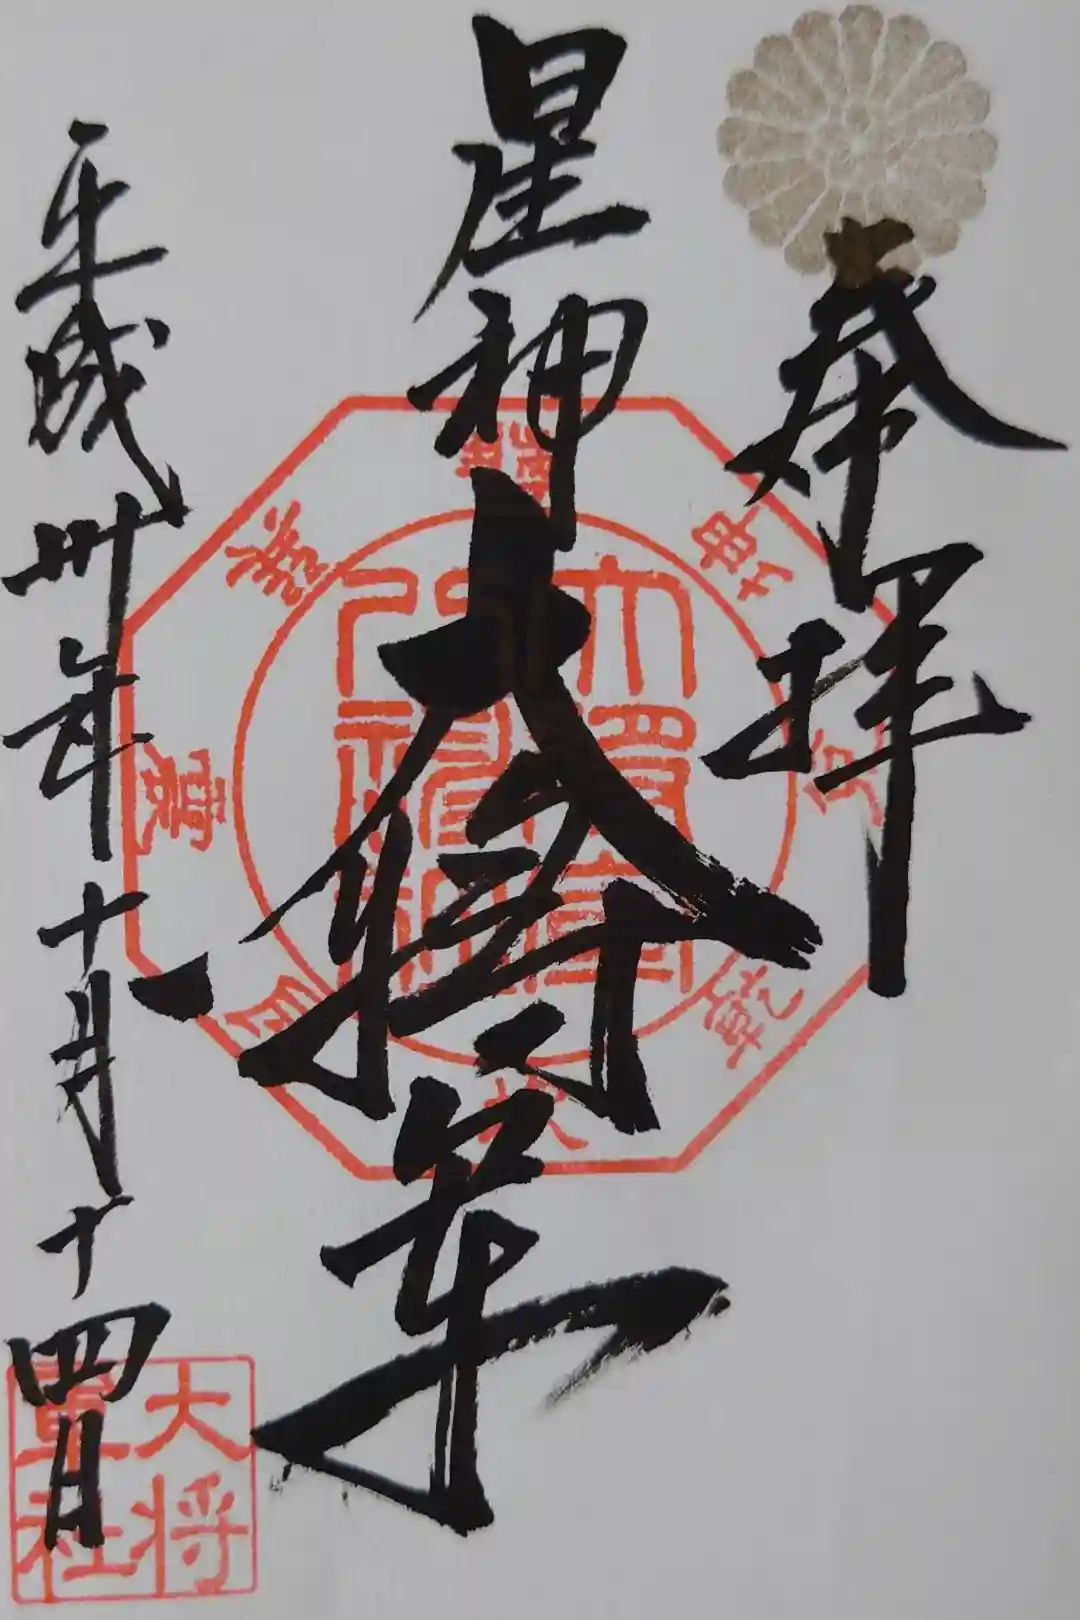 奉拝
星神
大将軍
平成卅年十月十四日
大将
軍社